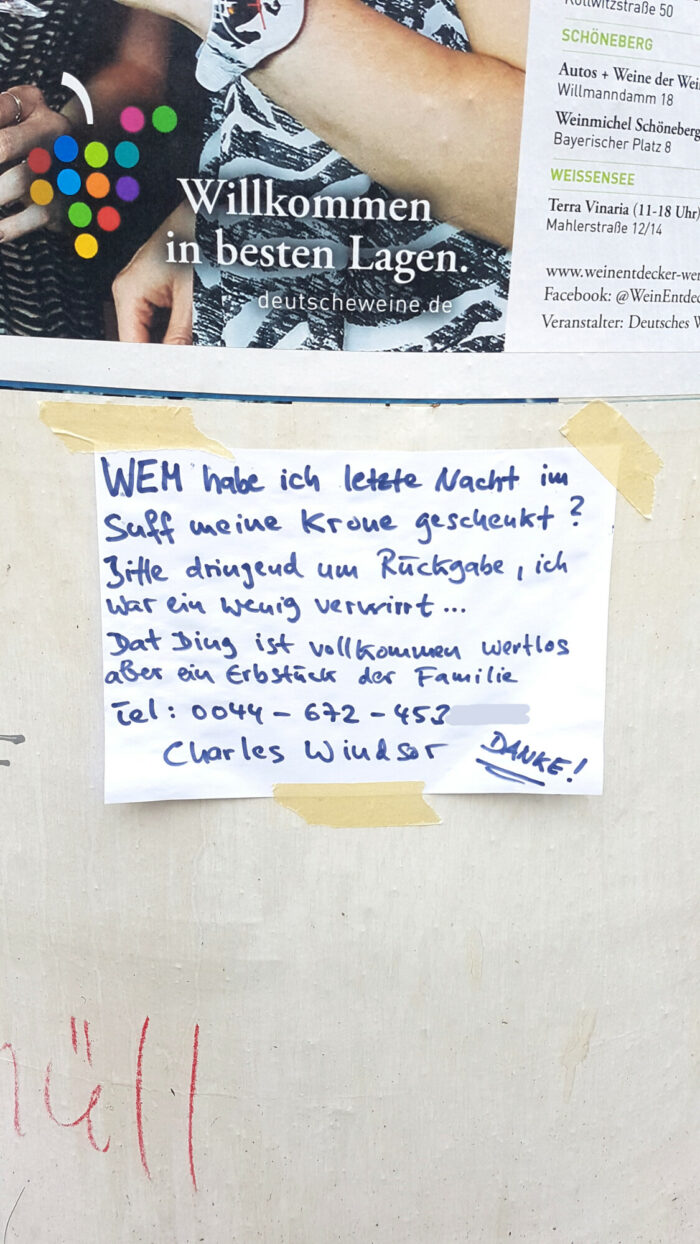 Kollwitzstraße 50
SCHÖNEBERG
Autos + Weine der
Willmanndamm 18
Weinmichel Schöneberg
Bayerischer Platz 8
WEISSENSEE
Terra Vinaria (11-18 Uhr)
Mahlerstraße 12/14
www.weinentdecker-we
Facebook: @WeinEntdec
Veranstalter: Deutsches W
Willkommen
in besten Lagen.
deutscheweine.de
WEM habe ich letzte Nacht im
Suff meine Krone geschenkt?
Bitte dringend um Rückgabe, ich
war ein wenig verwirrt...
Dat Ding ist vollkommen wertlos
aber ein Erbstück der Familie
Tel: 0044 - 672 - 453
Charles Windsor DANKE!
müll